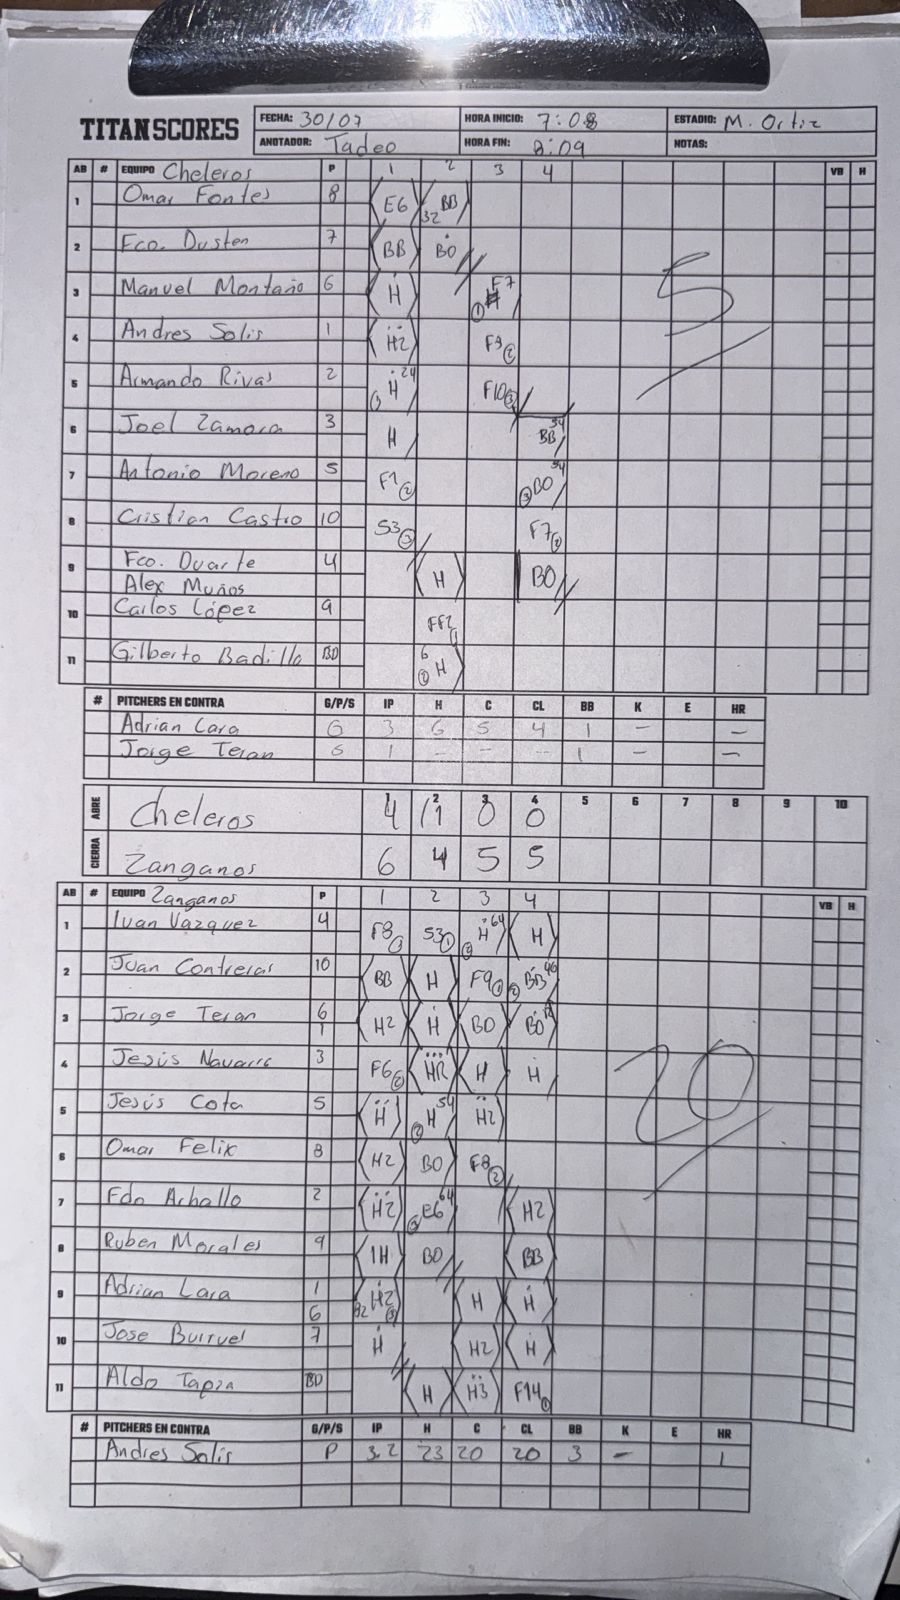 TITAN SCORES
FECHA: 30/07 HORA INICIO: 7:08 ESTADIO: M. Ortiz
ANOTADOR: Tadeo HORA FIN: 8:09 NOTAS:
AB # EQUIPO Cheleros P 1 2 3 4 VB H
1 Omar Fontes 8 E6 BB 32
2 Fco. Dusten 7 BB BO
3 Manuel Montaño 6 H F7 1
4 Andres Solis 1 H2 F9 2
5 Armando Rivas 2 H 24 F10 3
6 Joel Zamora 3 H BB 54
7 Antonio Moreno 5 F1 2 BO 54 3
8 Cristian Castro 10 53 3 F7 2
9 Fco. Duarte 4 H BO
Alex Muños
10 Carlos López 9 FF2 1
11 Gilberto Badillo BD 6 H 2
5
# PITCHERS EN CONTRA G/P/S IP H C CL BB K E HR
Adrian Lara G 3 6 5 4 1 - -
Jorge Teran S 1 - - - 1 - -
ABRE 1 2 3 4 5 6 7 8 9 10
Cheleros 4 1 0 0
CIERRA Zanganos 6 4 5 5
AB # EQUIPO Zanganos P 1 2 3 4 VB H
1 Ivan Vazquez 4 F8 1 53 1 H 64 H
2 Juan Contreras 10 BB H F9 1 BB 46 2
3 Jorge Teran 6 1 H2 H BO BO
4 Jesús Navarro 3 F6 2 HR H H
5 Jesús Cota 5 H H 54 2 H2
6 Omar Felix 8 H2 BO F8 2
7 Fdo Arballo 2 H2 E6 64 H2
8 Ruben Morales 9 1H BO BB
9 Adrian Lara 1 6 H2 82 3 H H
10 Jose Burruel 7 H H2 H
11 Aldo Tapia BD H H3 F14 1
20
# PITCHERS EN CONTRA G/P/S IP H C CL BB K E HR
Andres Solis P 3.2 23 20 20 3 - 1